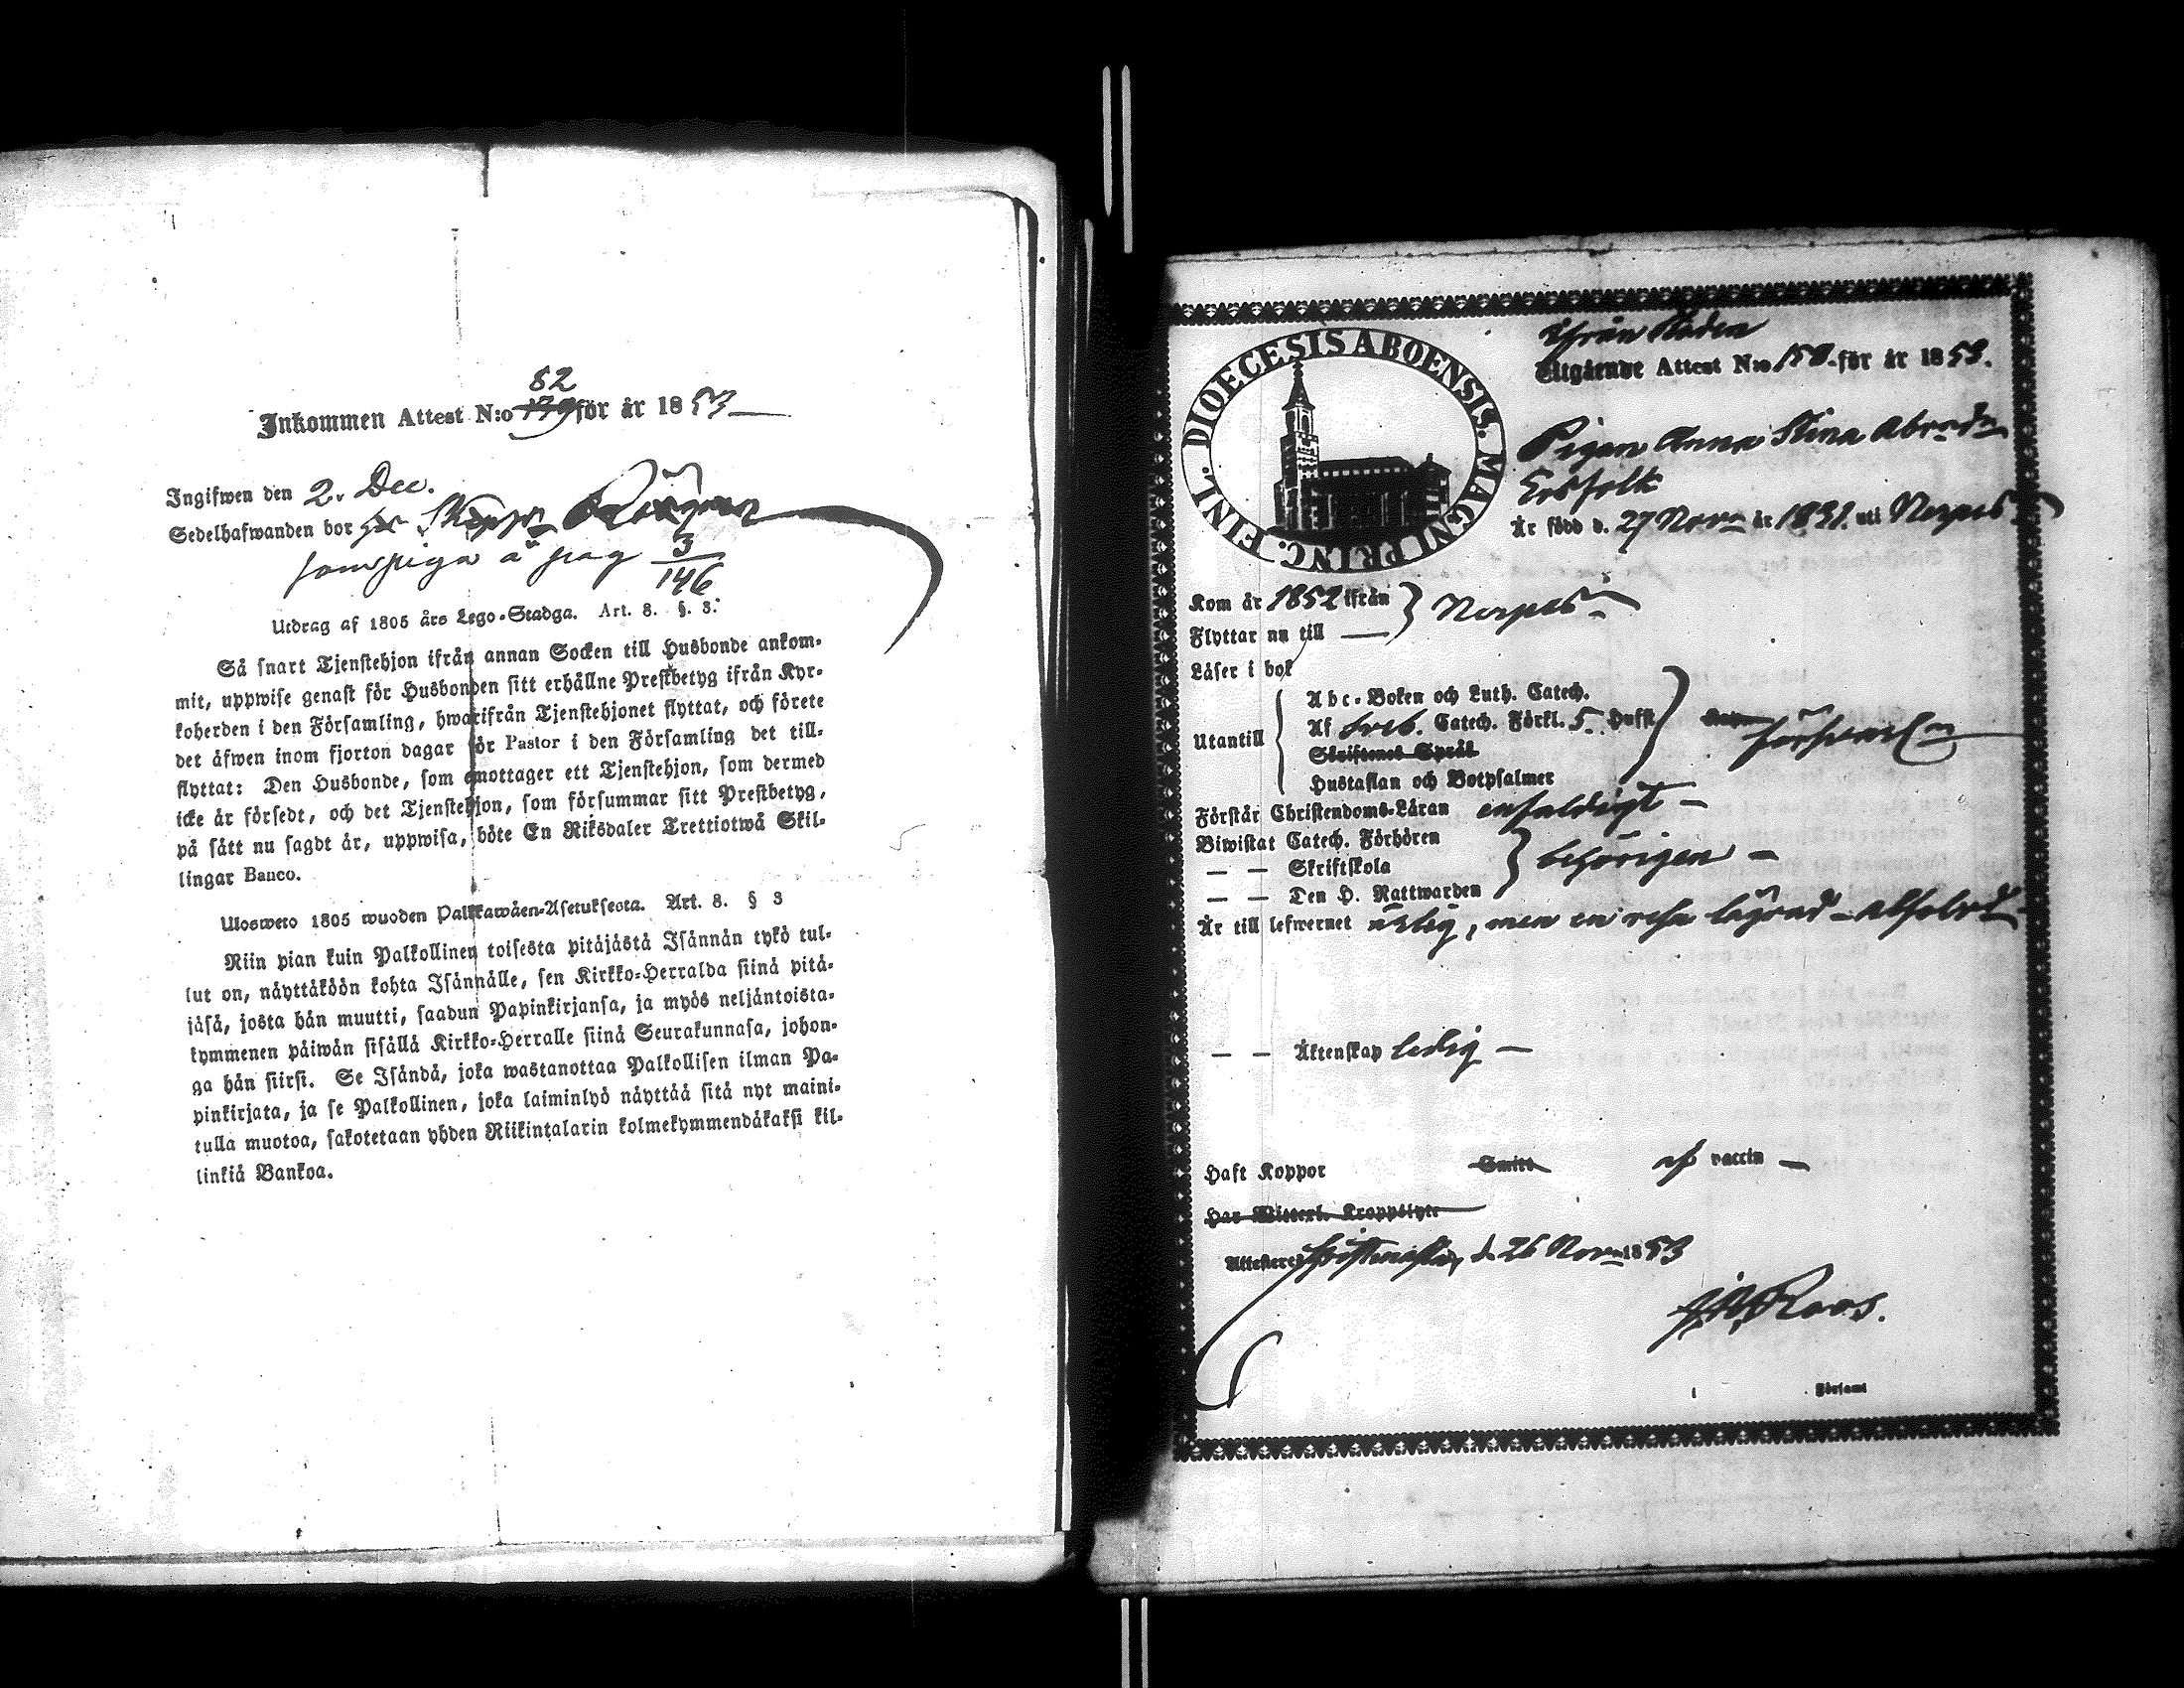 82
Inkommen Attest N:o 179 för år 1853
Ingifwen den 2. Dec.
Sedelhafwanden bor hos Skepps
som piga å pag 3/146
Utdrag af 1805 års Lego-Stadga. Art. 8. §. 3.
Så snart Tjenstehjon ifrån annan Socken till Husbonde ankom-
mit, uppwise genast för Husbonden sitt erhållne Prestbetyg ifrån Kyr-
koherden i den Församling, hwarifrån Tjenstehjonet flyttat, och förete
det äfwen inom fjorton dagar för Pastor i den Församling det till-
flyttat: Den Husbonde, som emottager ett Tjenstehjon, som dermed
icke är försedt, och det Tjenstehjon, som försummar sitt Prestbetyg,
på sätt nu sagdt är, uppwisa, böte En Riksdaler Trettiotwå Skil-
lingar Banco.
Ulosweto 1805 wuoden Palkkawäen-Asetuksesta. Art. 8. § 3
Niin pian kuin Palkollinen toisesta pitäjästä Isännän tykö tul-
lut on, näyttäköön kohta Isännälle, sen Kirkko-Herralda siinä pitä-
jäsä, josta hän muutti, saadun Papinkirjansa, ja myös neljäntoista-
kymmenen päiwän sisällä Kirkko-Herralle siinä Seurakunnasa, johon-
ga hän siirsi. Se Isändä, joka wastanottaa Palkollisen ilman Pa-
pinkirjata, ja se Palkollinen, joka laiminlyö näyttää sitä nyt maini-
tulla muotoa, sakotetaan yhden Riikintalarin kolmekymmendäkaksi kil-
linkiä Bankoa.
DIOECESIS ABOENSIS. MAGNI PRINC. FINL.
ifrån Staden
Utgående Attest N:o 150 för år 1853.
Pigan Anna Stina Abrdr
Ersfolk
Är född d. 27 Novr år 1831. uti Nerpes
Kom år 1852 ifrån
Flyttar nu till } Nerpes
Läser i bok
Abc-Boken och Luth. Catech.
Utantill Af Sveb. Catech. Förkl. 5 Hufst
Skriftenes Språk
Hustaflan och Botpsalmer
Förstår Christendoms-Läran enfaldigt
Biwistat Catech. Förhören
— — Skriftskola } behörigen
— — Den H. Nattwarden
Är till lefwernet ärlig, men en resa lägrad - absolvd
— — Äktenskap ledig
Haft Koppor Smitt af vaccin
Har Witterl. Kroppslyte
Attesterer d. 26 Novr 1853
Roos.
Församl